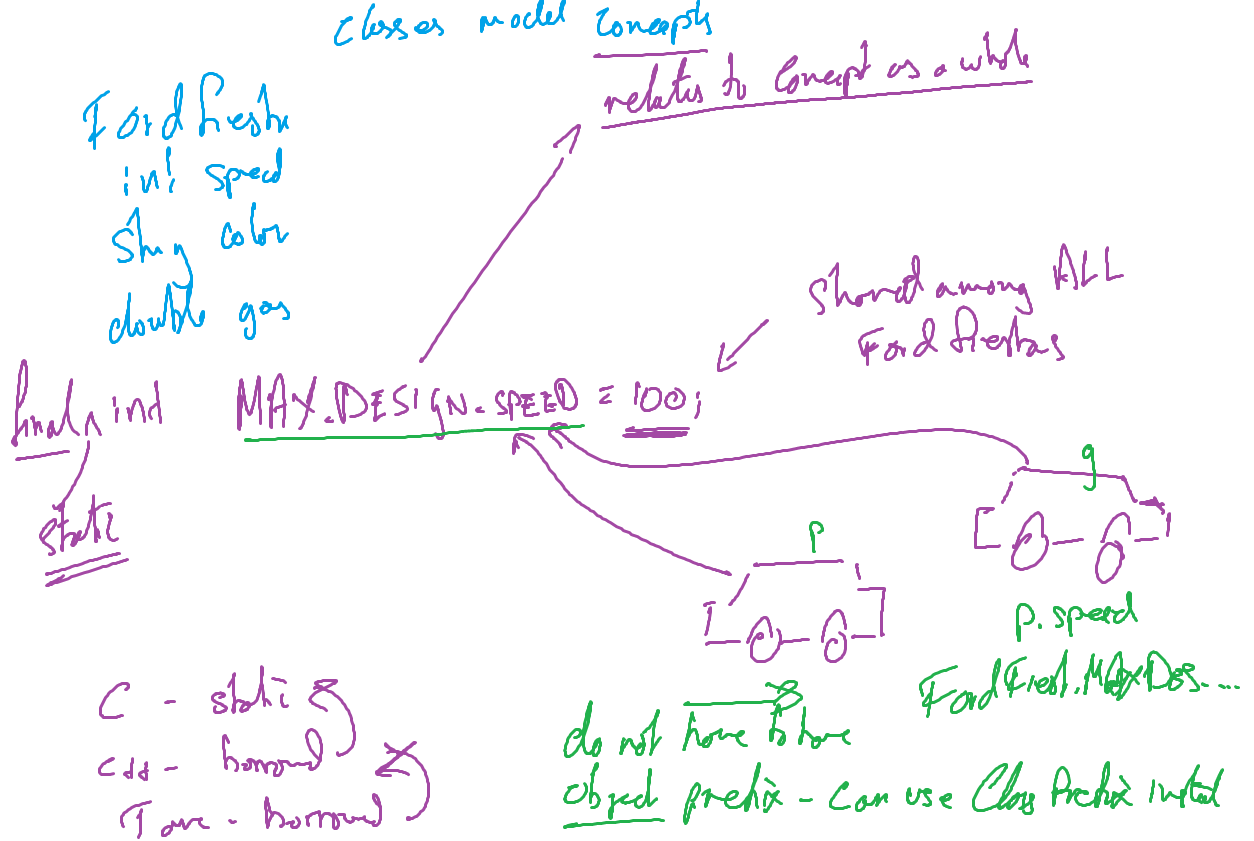 Classes model concepts
relates to concept as a whole
Ford fiesta
int speed
String color
double gas
Shared among ALL
Ford fiestas
final ^ int MAX_DESIGN_SPEED = 100;
static
g
p
p. speed
Ford Fiest.MAxDes....
C - static
C++ - borrowed
Java - borrowed
do not have to have
object prefix - can use Class Prefix instead